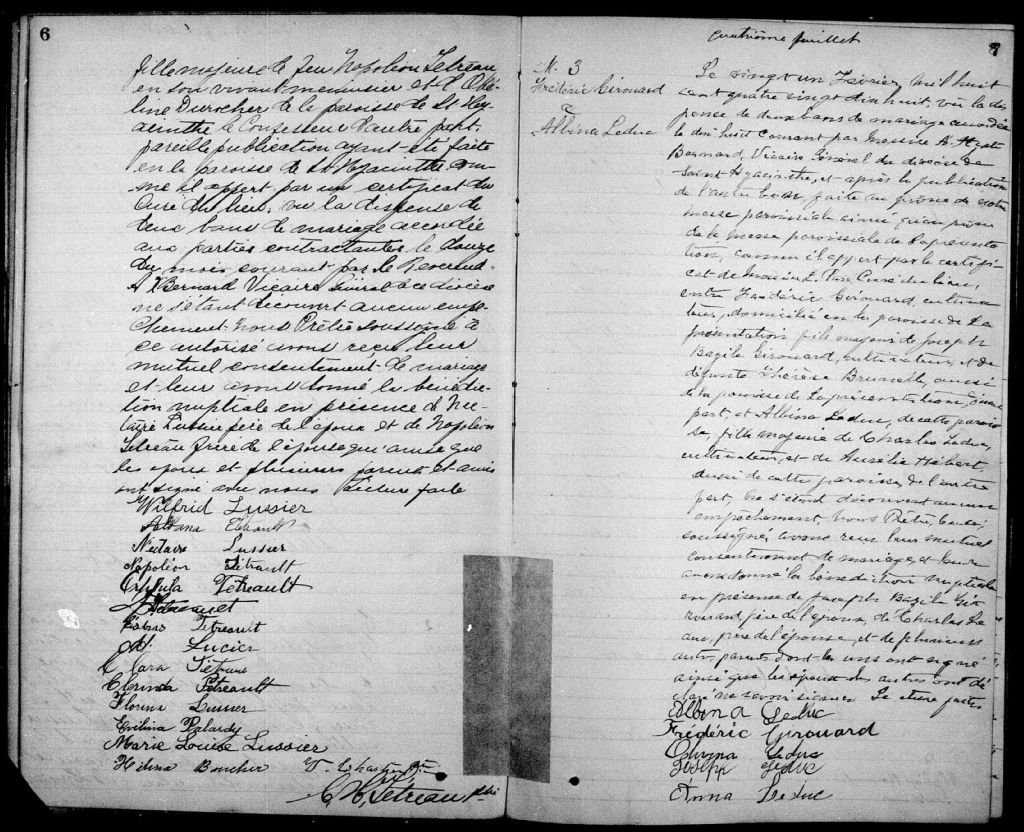 6
fille majeure de feu Napoléon Tetreau
en son vivant menuisier et d'Obe-
line Durocher de la paroisse de St Hya-
cinthe le Confesseur d'autre part,
pareille publication ayant été faite
en la paroisse de St Hyacinthe com-
me il appert par un certificat du
Curé du lieu; vu la dispense de
deux bans de mariage accordée
aux parties contractantes le douze
du mois courant par le Reverend
A X Bernard Vicaire Général de ce diocèse
ne s'étant découvert aucun empê-
chement, Nous Prêtre soussigné à
ce autorisé avons reçu leur
mutuel consentement de mariage
et leur avons donné la bénédic-
tion nuptiale en présence de Nec-
taire Lussier père de l'époux et de Napoléon
Tetreau frère de l'épouse qui ainsi que
les époux et plusieurs parents et amis
ont signé avec nous Lecture faite
Wilfrid Lussier
Albana Tetrault
Nectaire Lussier
Napoléon Tétrault
Orphula Tetreault
Tetreault
M. Lucier
Clara
Clorinda Tetreault
Florina Lussier
Evilina Palardy
Marie Louise Lussier
Hélèna Boucher
C H Tetreau Ptre
7
quatrième feuillet
M. 3
Frédéric Girouard
&
Albina Leduc
Le vingt un Fevrier, mil huit
cent quatre vingt dix huit, vu la dis-
pense de deux bans de mariage accordée
le dix huit courant par Messire A. Hyac.
Bernard, Vicaire Général du diocèse de
Saint Hyacinthe, et après la publication
de l'autre ban faite au prône de notre
messe paroissiale ainsi qu'au prône
de la messe paroissiale de La présenta-
tion, comme il appert par le certifi-
cat de Messire Curé du lieu,
entre Frédéric Girouard, cultiva-
teur, domicilié en la paroisse de La
présentation fils majeur de Joseph
Bazile Girouard, cultivateur, et de
défunte Thérèse Brunelle, aussi
de la paroisse de La présentation, d'une
part, et Albina Leduc, de cette parois-
se, fille majeure de Charles Leduc,
cultivateur, et de Aurélie Hébert,
aussi de cette paroisse, de l'autre
part, ne s'étant découvert aucun
empêchement, Nous Prêtre, Curé,
soussigné, avons reçu leur mutuel
consentement de mariage, et leur
avons donné la bénédiction nuptiale
en présence de Joseph Bazile Gi-
rouard, père de l'époux, de Charles Le
duc, père de l'épouse, et de plusieurs
autres parents dont les uns ont signé
ainsi que les époux les autres ont dé-
claré ne savoir signer. Lecture faite
Albina Leduc
Frédéric Girouard
Leduc
Joseph Leduc
Anna Leduc